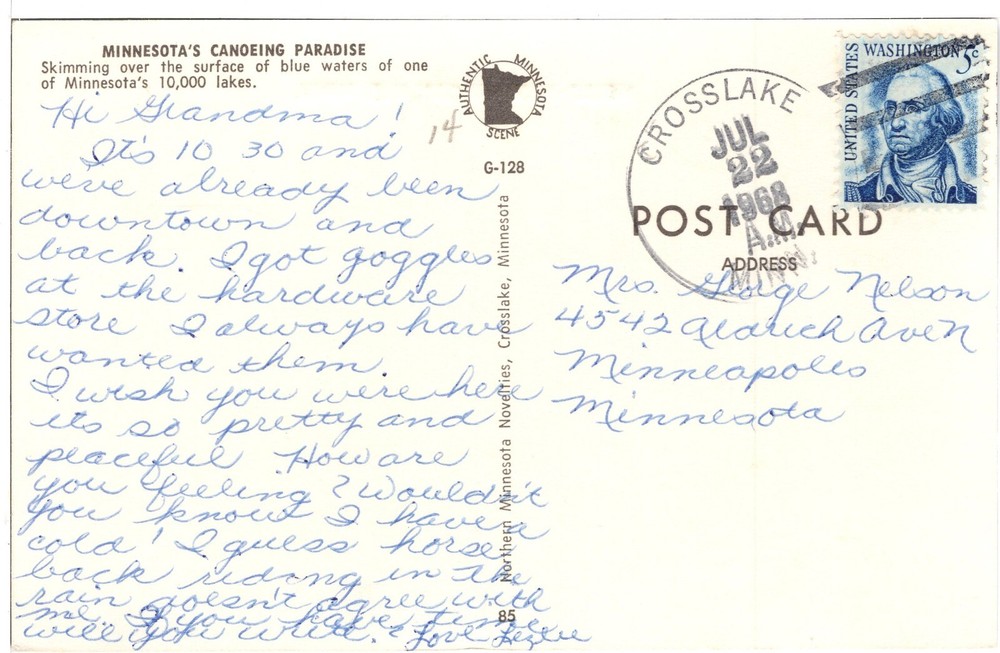 MINNESOTA'S CANOEING PARADISE
Skimming over the surface of blue waters of one
of Minnesota's 10,000 lakes.
Hi Grandma!
It's 10 30 and
we've already been
downtown and
back. I got goggles
at the hardware
store I always have
wanted them.
I wish you were here
its so pretty and
peaceful How are
you feeling? Wouldn't
you know I have a
cold! I guess horse
back riding in the
rain doesn't agree with
me. If you have time
will you write? Love Lezlie
14
AUTHENTIC MINNESOTA
SCENE
G-128
Northern Minnesota Novelties, Crosslake, Minnesota
85
CROSSLAKE
JUL
22
1968
A.M.
MINN.
UNITED STATES
WASHINGTON 5c
POST CARD
ADDRESS
Mrs. George Nelson
4542 Aldrich Ave N
Minneapolis
Minnesota